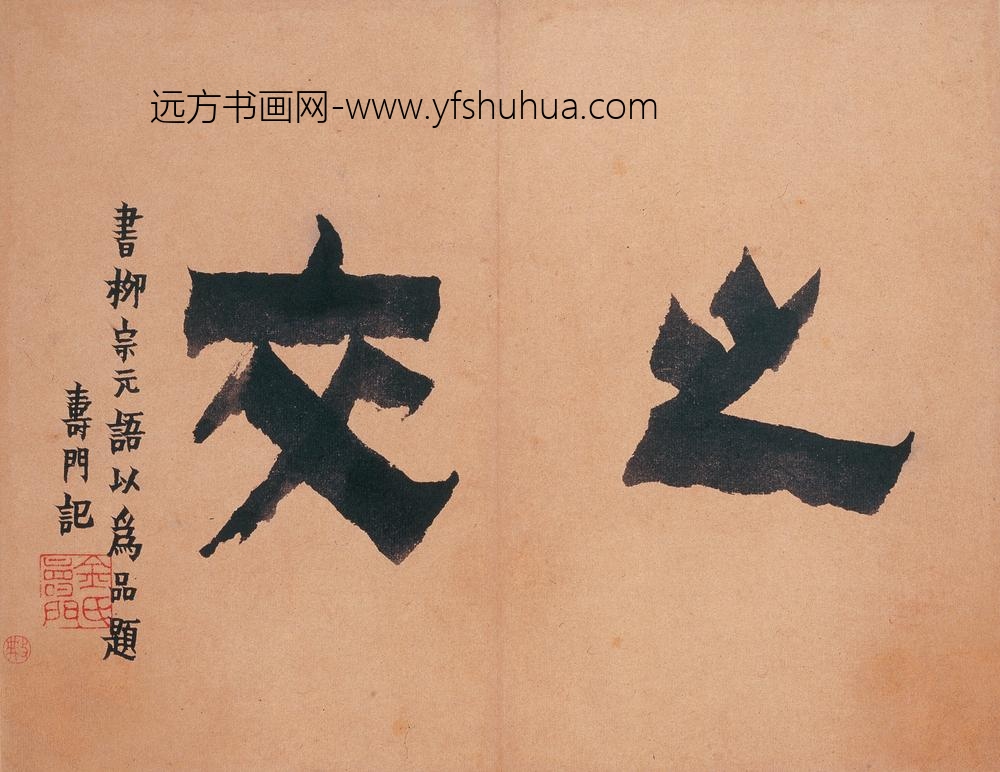 远方书画网-www.yfshuhua.com
之
交
書柳宗元語以為品題
壽門記
金氏
壽門